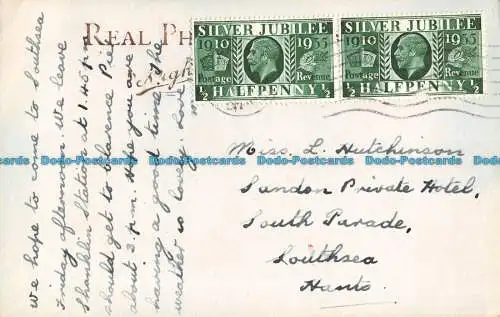 REAL PH
SILVER JUBILEE
1910 1935
Postage Revenue
1/2 HALFPENNY 1/2
SILVER JUBILEE
1910 1935
Postage Revenue
1/2 HALFPENNY 1/2
We hope to come to Southsea
Friday afternoon. We leave
Shanklin Station at 1.45 p.m
should get to Clarence Pier
about 3. p.m. Hope you are
having a good time. The
weather is lovely. Love
Miss. L. Hutchinson
Sandon Private Hotel,
South Parade,
Southsea
Hants.
Dodo-Postcards Dodo-Postcards Dodo-Postcards Dodo-Postcards